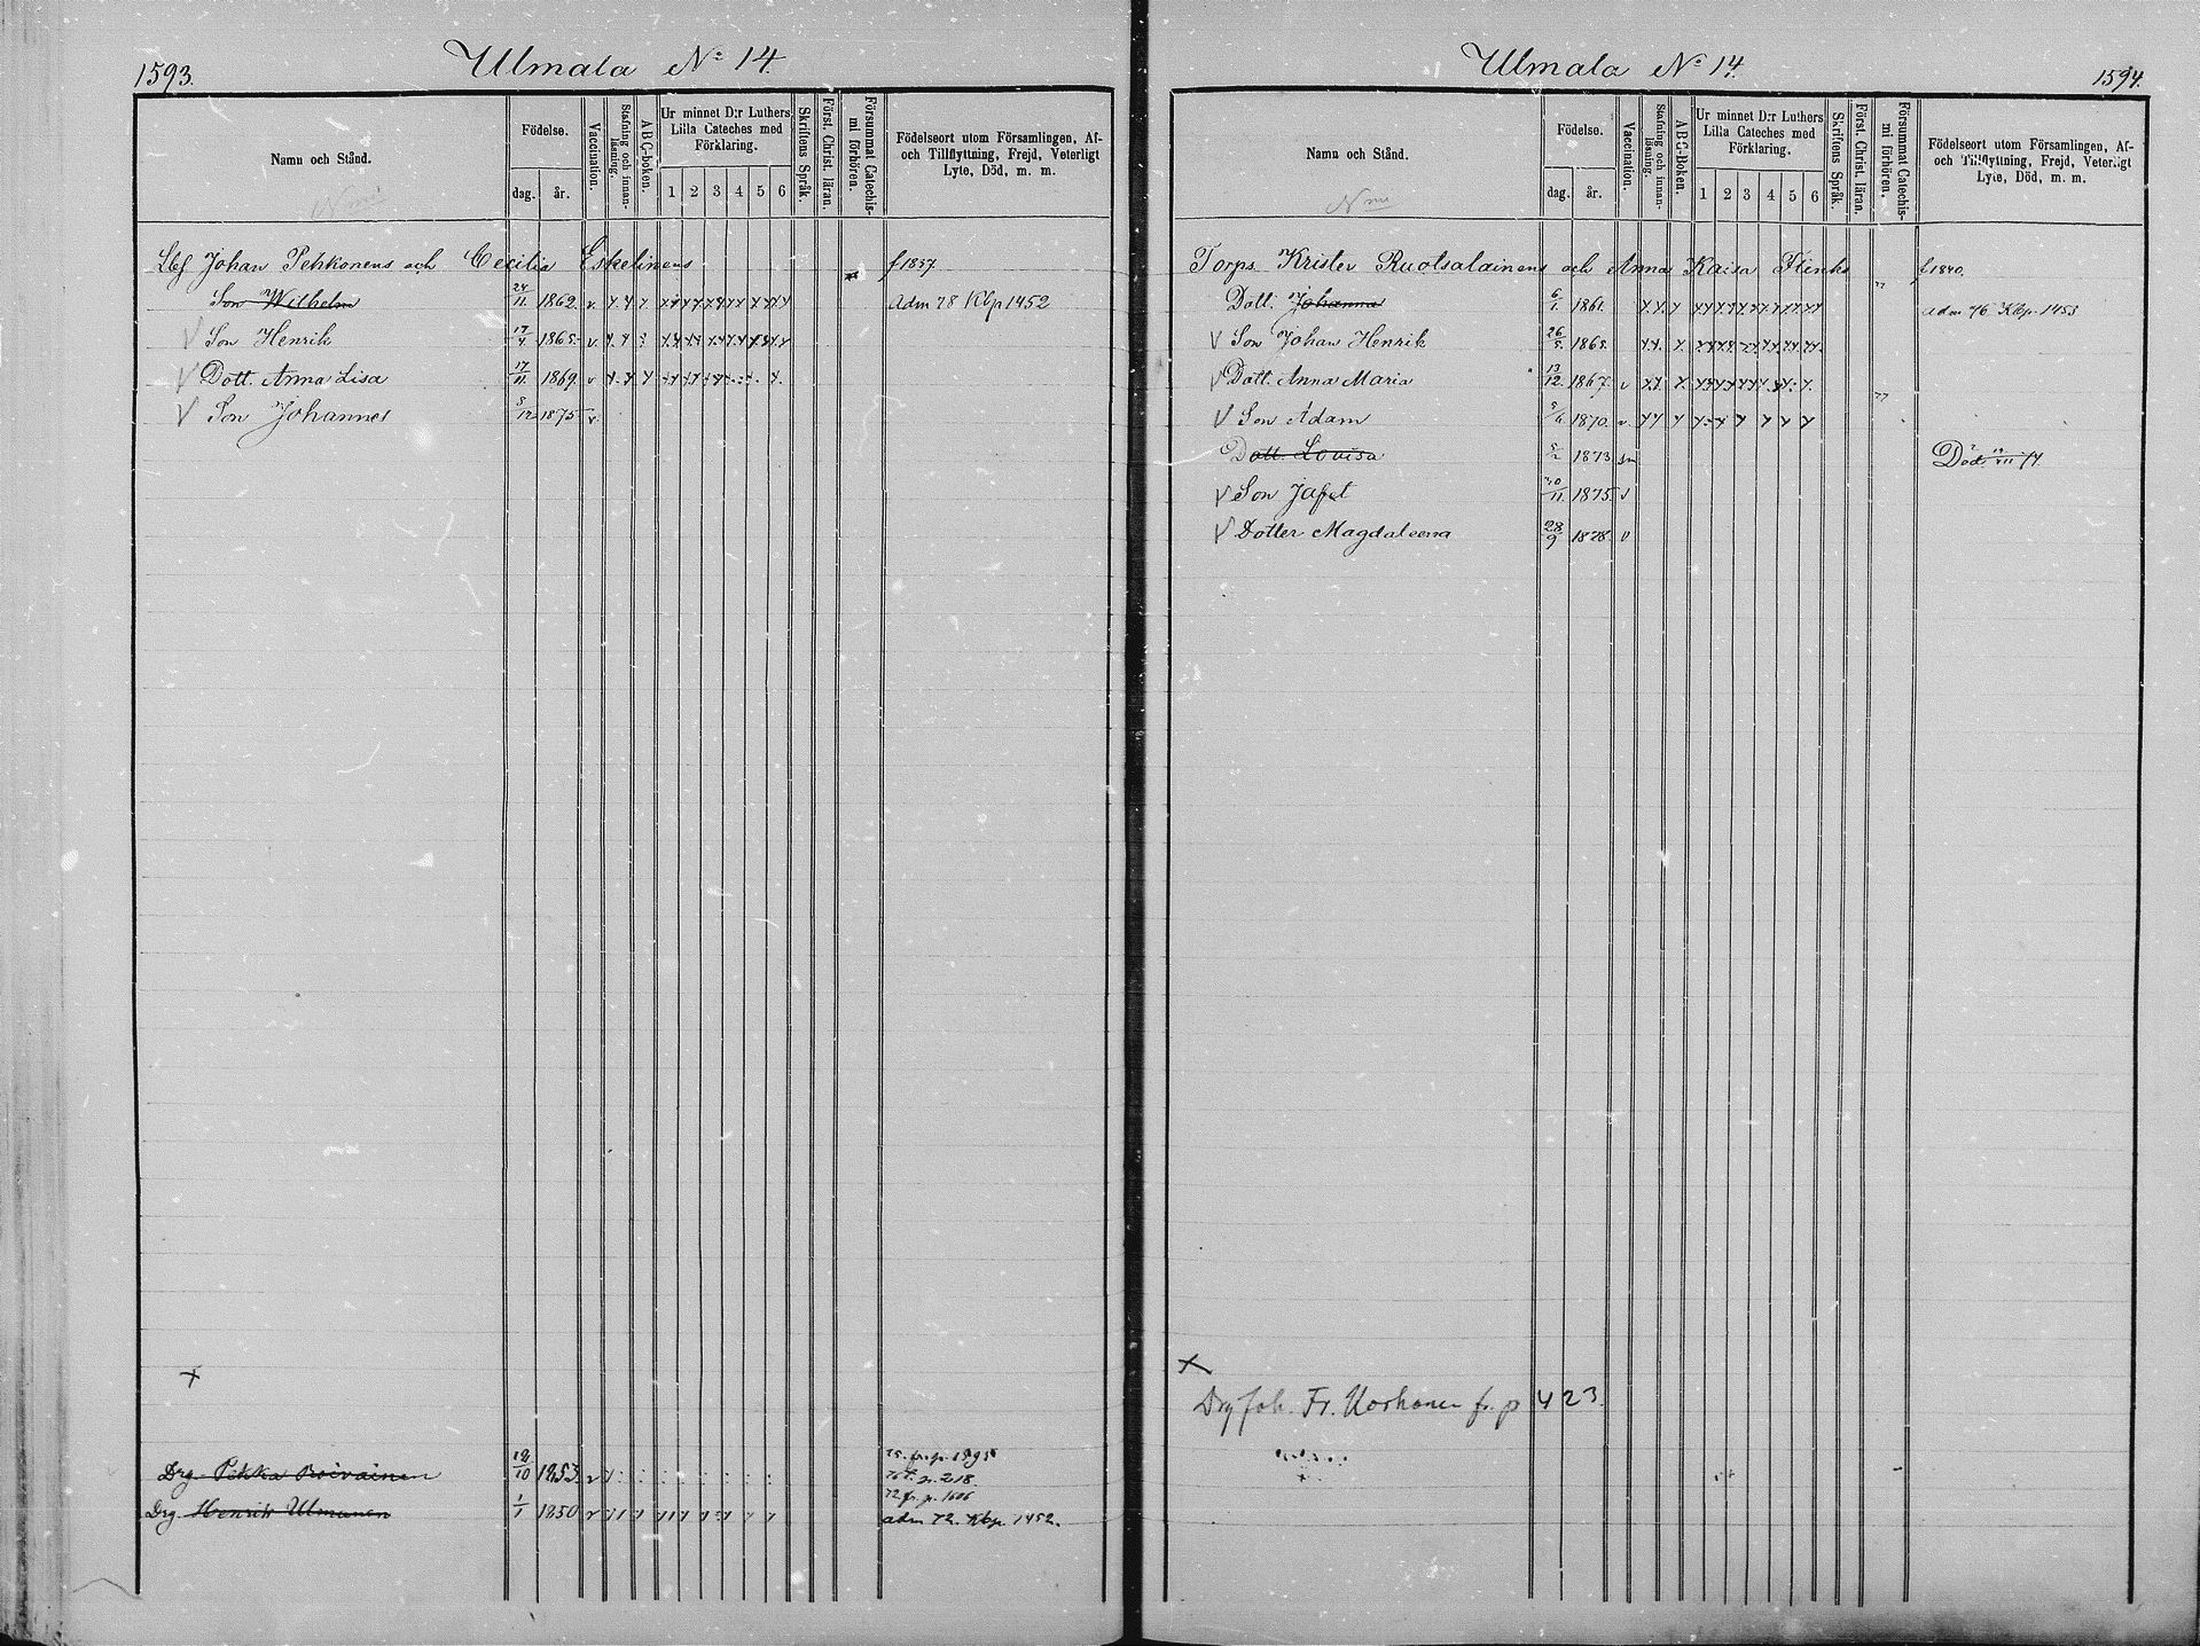 1593.
Ulmala No 14.
Namn och Stånd.
Födelse.
dag.
år.
Vaccination.
Stafning och innan-läsning.
ABC-boken.
Ur minnet D:r Luthers
Lilla Cateches med
Förklaring.
1 2 3 4 5 6
Skriftens Språk.
Först. Christ. läran.
Försummat Catechis-
mi förhören.
Födelseort utom Församlingen, Af-
och Tillflyttning, Frejd, Veterligt
Lyte, Död, m. m.
Johan Pehkonens och Cecilia Eskelinens f 1837
Son Wilhelm 24/11. 1862. v. Adm 78 Kbp 1452
V Son Henrik 17/4. 1865. v.
V Dott. Anna Lisa 17/11. 1869. v
V Son Johannes 5/12 1875 v.
+
Drg Pekka Roivainen 12/10 1853. v 75. fr. p. 1595
76 t. p. 218.
72 fr. p. 1606
Drg. Henrik Ulmanen 1/1 1850 v adm 72. Kbp. 1452.
Ulmala No 14.
1594.
Namn och Stånd.
Födelse.
dag.
år.
Vaccination.
Stafning och innan-läsning.
ABC-Boken.
Ur minnet D:r Luthers
Lilla Cateches med
Förklaring.
1 2 3 4 5 6
Skriftens Språk.
Först. Christ. läran.
Försummat Catechis-
mi förhören.
Födelseort utom Församlingen, Af-
och Tillflyttning, Frejd, Veterligt
Lyte, Död, m. m.
Torps. Krister Ruotsalainens och Anna Kaisa Flinks f 1840.
Dott. Johanna 6/1. 1861. adm 76 Kbp. 1453
V Son Johan Henrik 26/5. 1865.
V Dott. Anna Maria 13/12. 1867. v
V Son Adam 5/6 1870. v.
Dott. Lovisa 5/2 1873 Död
V Son Jafet 30/11. 1875 v
V Dotter Magdaleena 28/9 1878 v
+
Drg Joh. Fr. Korhonen fr. p 423.